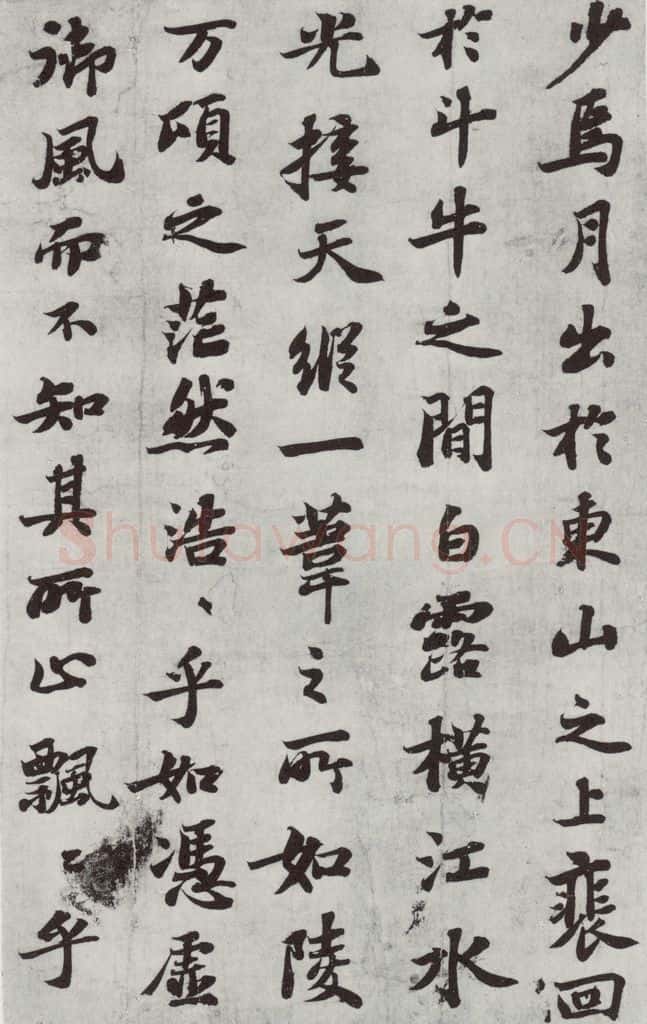 少焉月出於東山之上裴回
於斗牛之間白露橫江水
光接天縱一葦之所如陵
万頃之茫然浩〻乎如憑虛
御風而不知其所止飄〻乎
Shufawang.CN